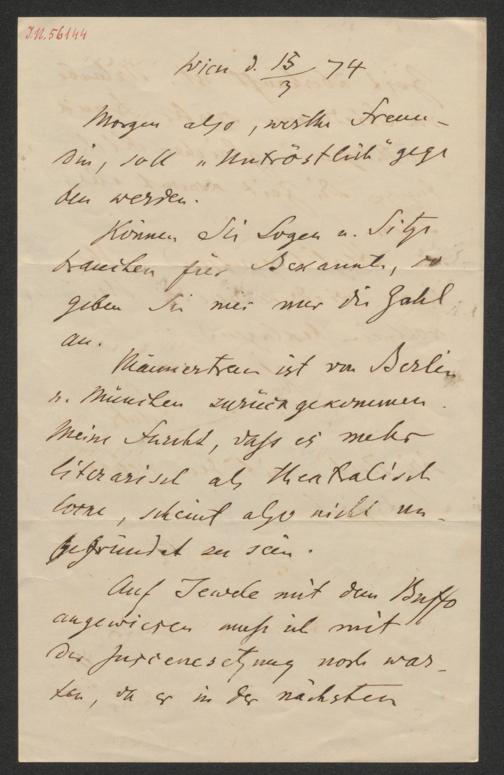 J.N. 56144
Wien d. 15/3 74
Morgen also, werthe Freun-
din, soll „Untröstlich" gege
ben werden.
Können Sie Logen u. Sitze
brauchen für Bekannte, so
geben Sie mir nur die Zahl
an.
Männertreu ist von Berlin
u. München zurückgekommen.
Meine Furcht, daß es mehr
literarisch als theatralisch
, scheint also nicht un-
gegründet zu sein.
Auf mit dem
angewiesen muß ich mit
der Inscenesetzung noch war-
ten, da er in der nächsten